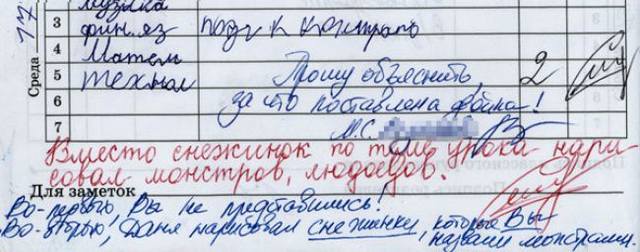 17
Среда
музыка
3 фин. яз подг к контраго
4 Матем
5 технол Прошу объяснить, 2
6 за что поставлена двойка!
7 М.С.
Вместо снежинок по теме урока нари
совал монстров, людоедов.
Для заметок
Во-первых Вы не представились!
Во-вторых, Даня нарисовал снежинку, которые Вы
назвали монстрами